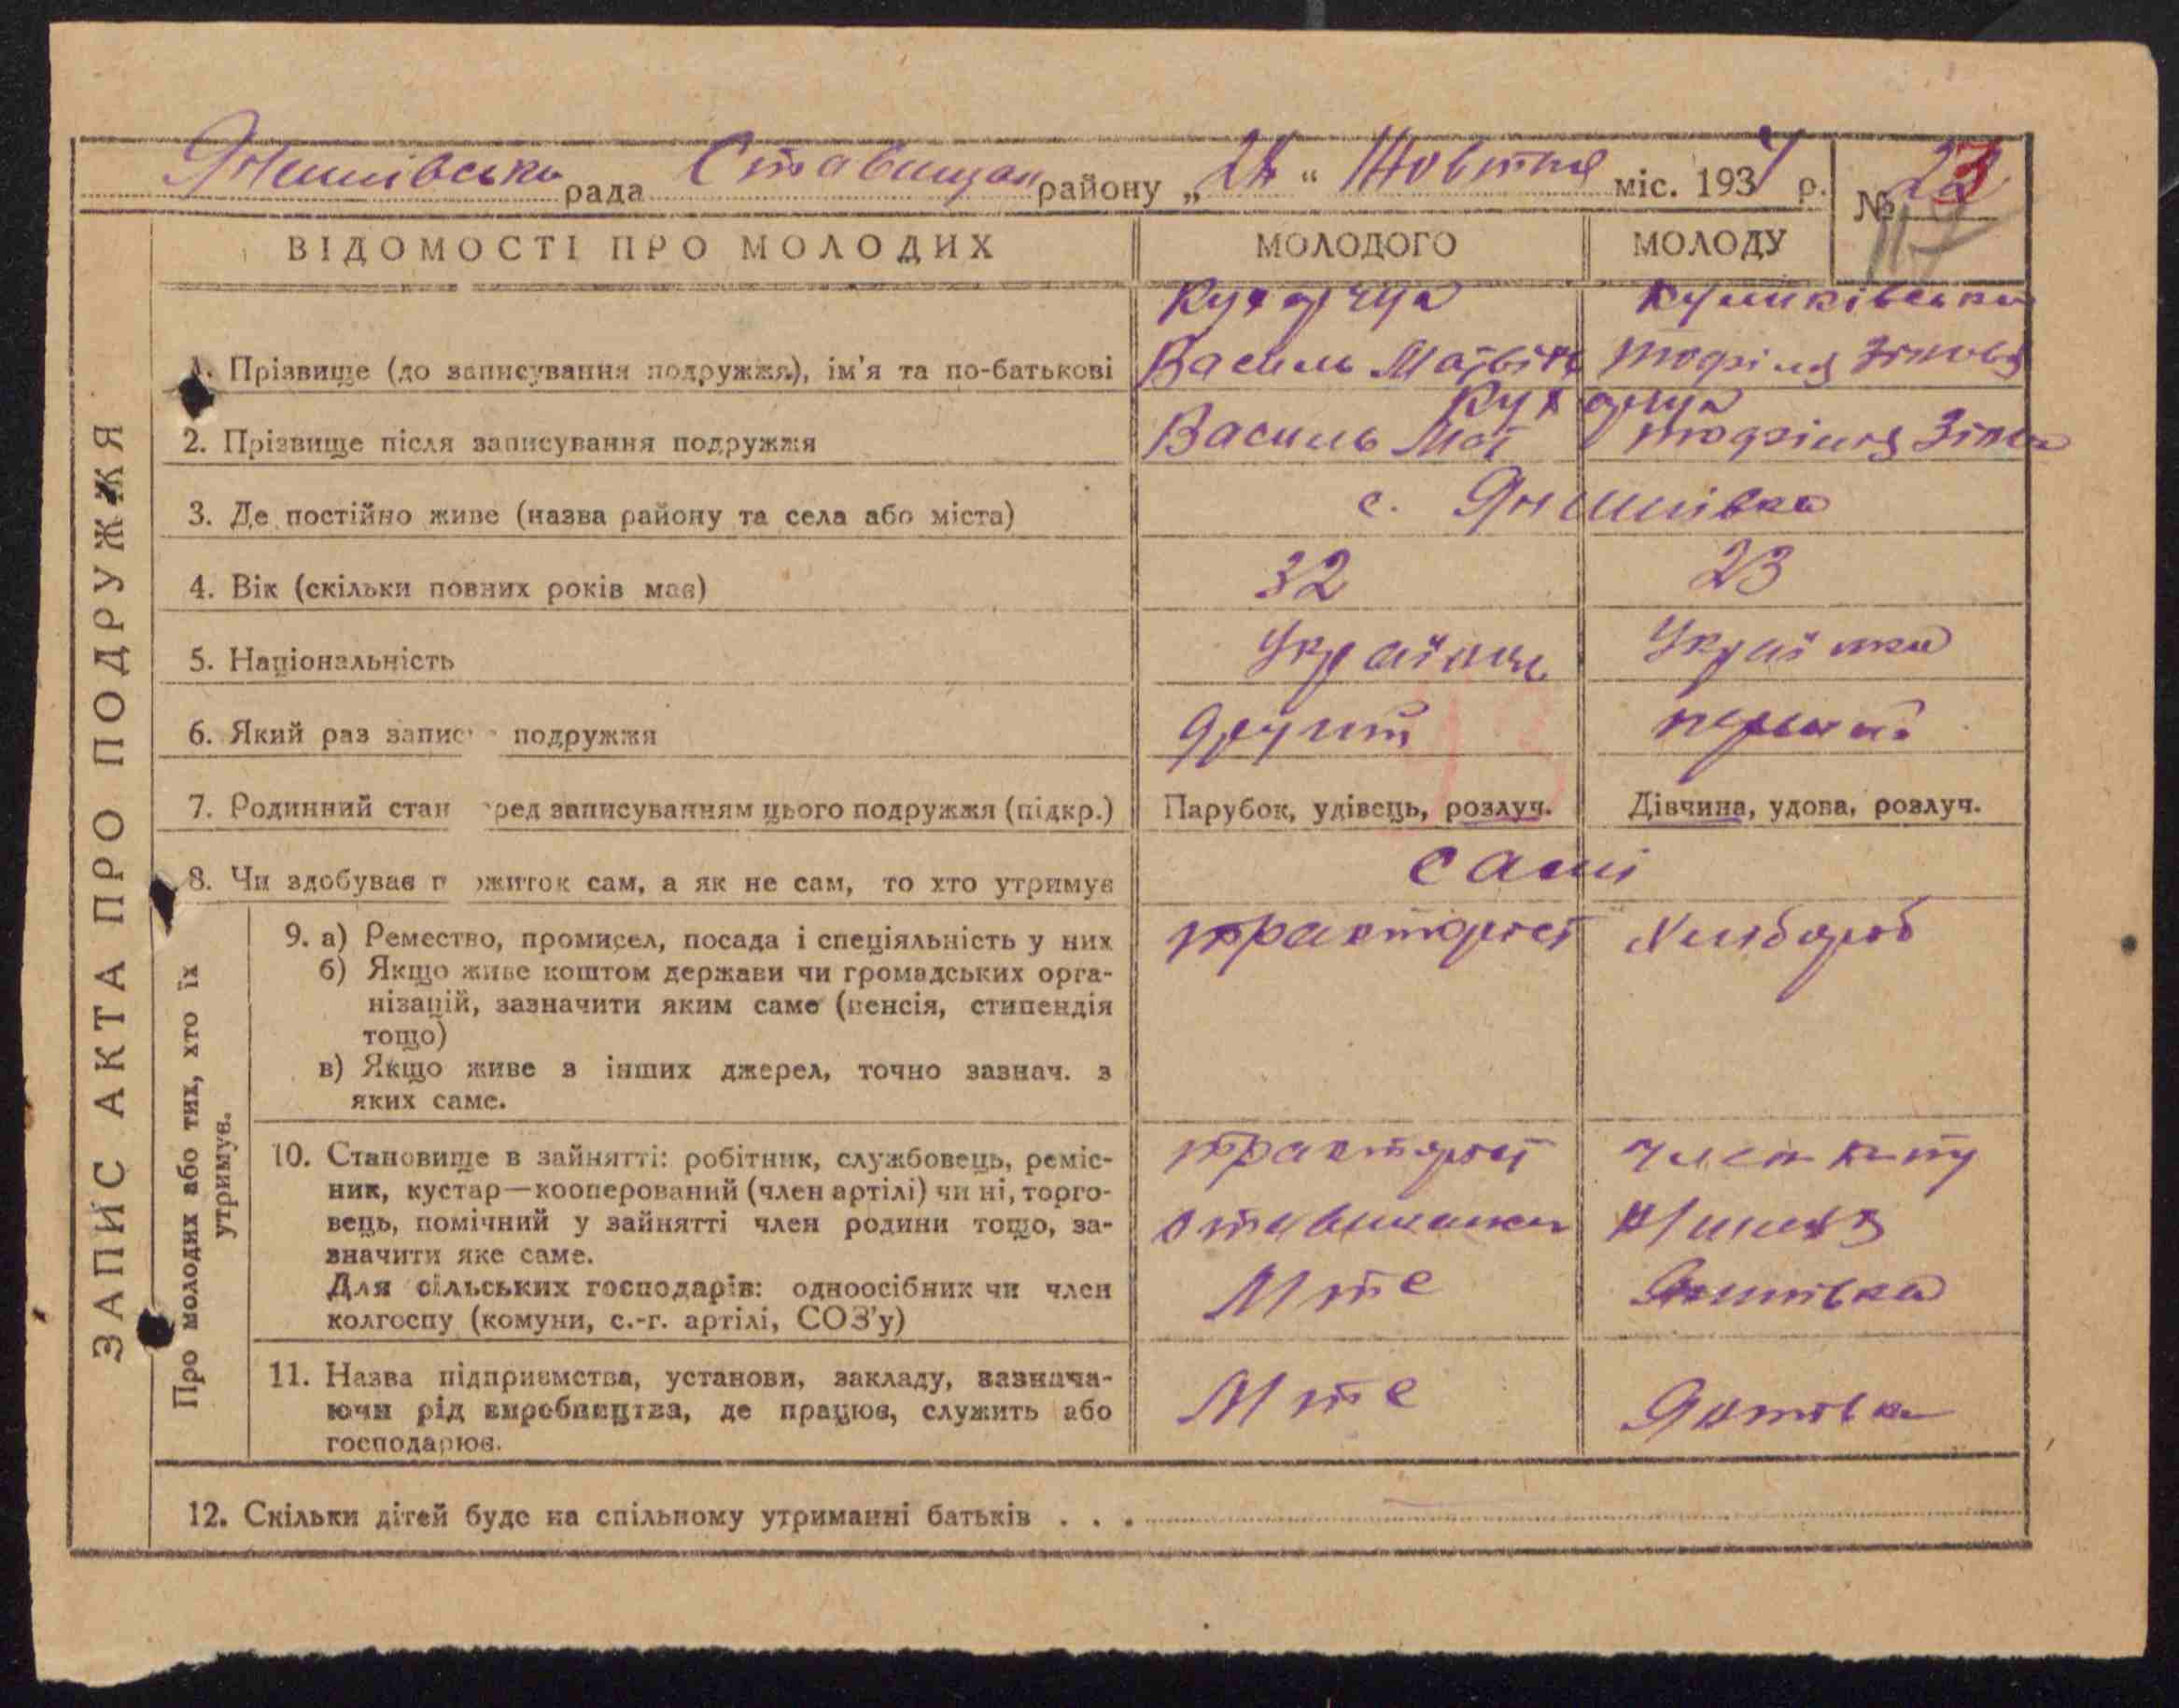 рада Ставищан району „24“ Жовтня міс. 193 р. №
ВІДОМОСТІ ПРО МОЛОДИХ МОЛОДОГО МОЛОДУ
ЗАПИС АКТА ПРО ПОДРУЖЖЯ
1. Прізвище (до записування подружжя), ім'я та по-батькові
Василь
2. Прізвище після записування подружжя
Василь Мат
3. Де постійно живе (назва району та села або міста) с. Янишівка
4. Вік (скільки повних років має) 32 23
5. Національність Українець Українка
6. Який раз запис подружжя другий первий
7. Родинний стан ред записуванням цього подружжя (підкр.) Парубок, удівець, розлуч. Дівчина, удова, розлуч.
8. Чи здобуває п ожиток сам, а як не сам, то хто утримує самі
Про молодих або тих, хто їх
утримує.
9. а) Ремество, промисел, посада і спеціяльність у них тракторист Хлібороб
б) Якщо живе коштом держави чи громадських орга-
нізацій, зазначити яким саме (пенсія, стипендія
тощо)
в) Якщо живе з інших джерел, точно зазнач. з
яких саме.
10. Становище в зайнятті: робітник, службовець, реміс- тракторист
ник, кустар—кооперований (член артілі) чи ні, торго-
вець, помічний у зайнятті член родини тощо, за-
значити яке саме.
Для сільських господарів: одноосібник чи член Мтс Янишівка
колгоспу (комуни, с.-г. артілі, СОЗ'у)
11. Назва підприємства, установи, закладу, зазнача- Мтс
ючи рід виробництва, де працює, служить або
господарює.
12. Скільки дітей буде на спільному утриманні батьків . . .